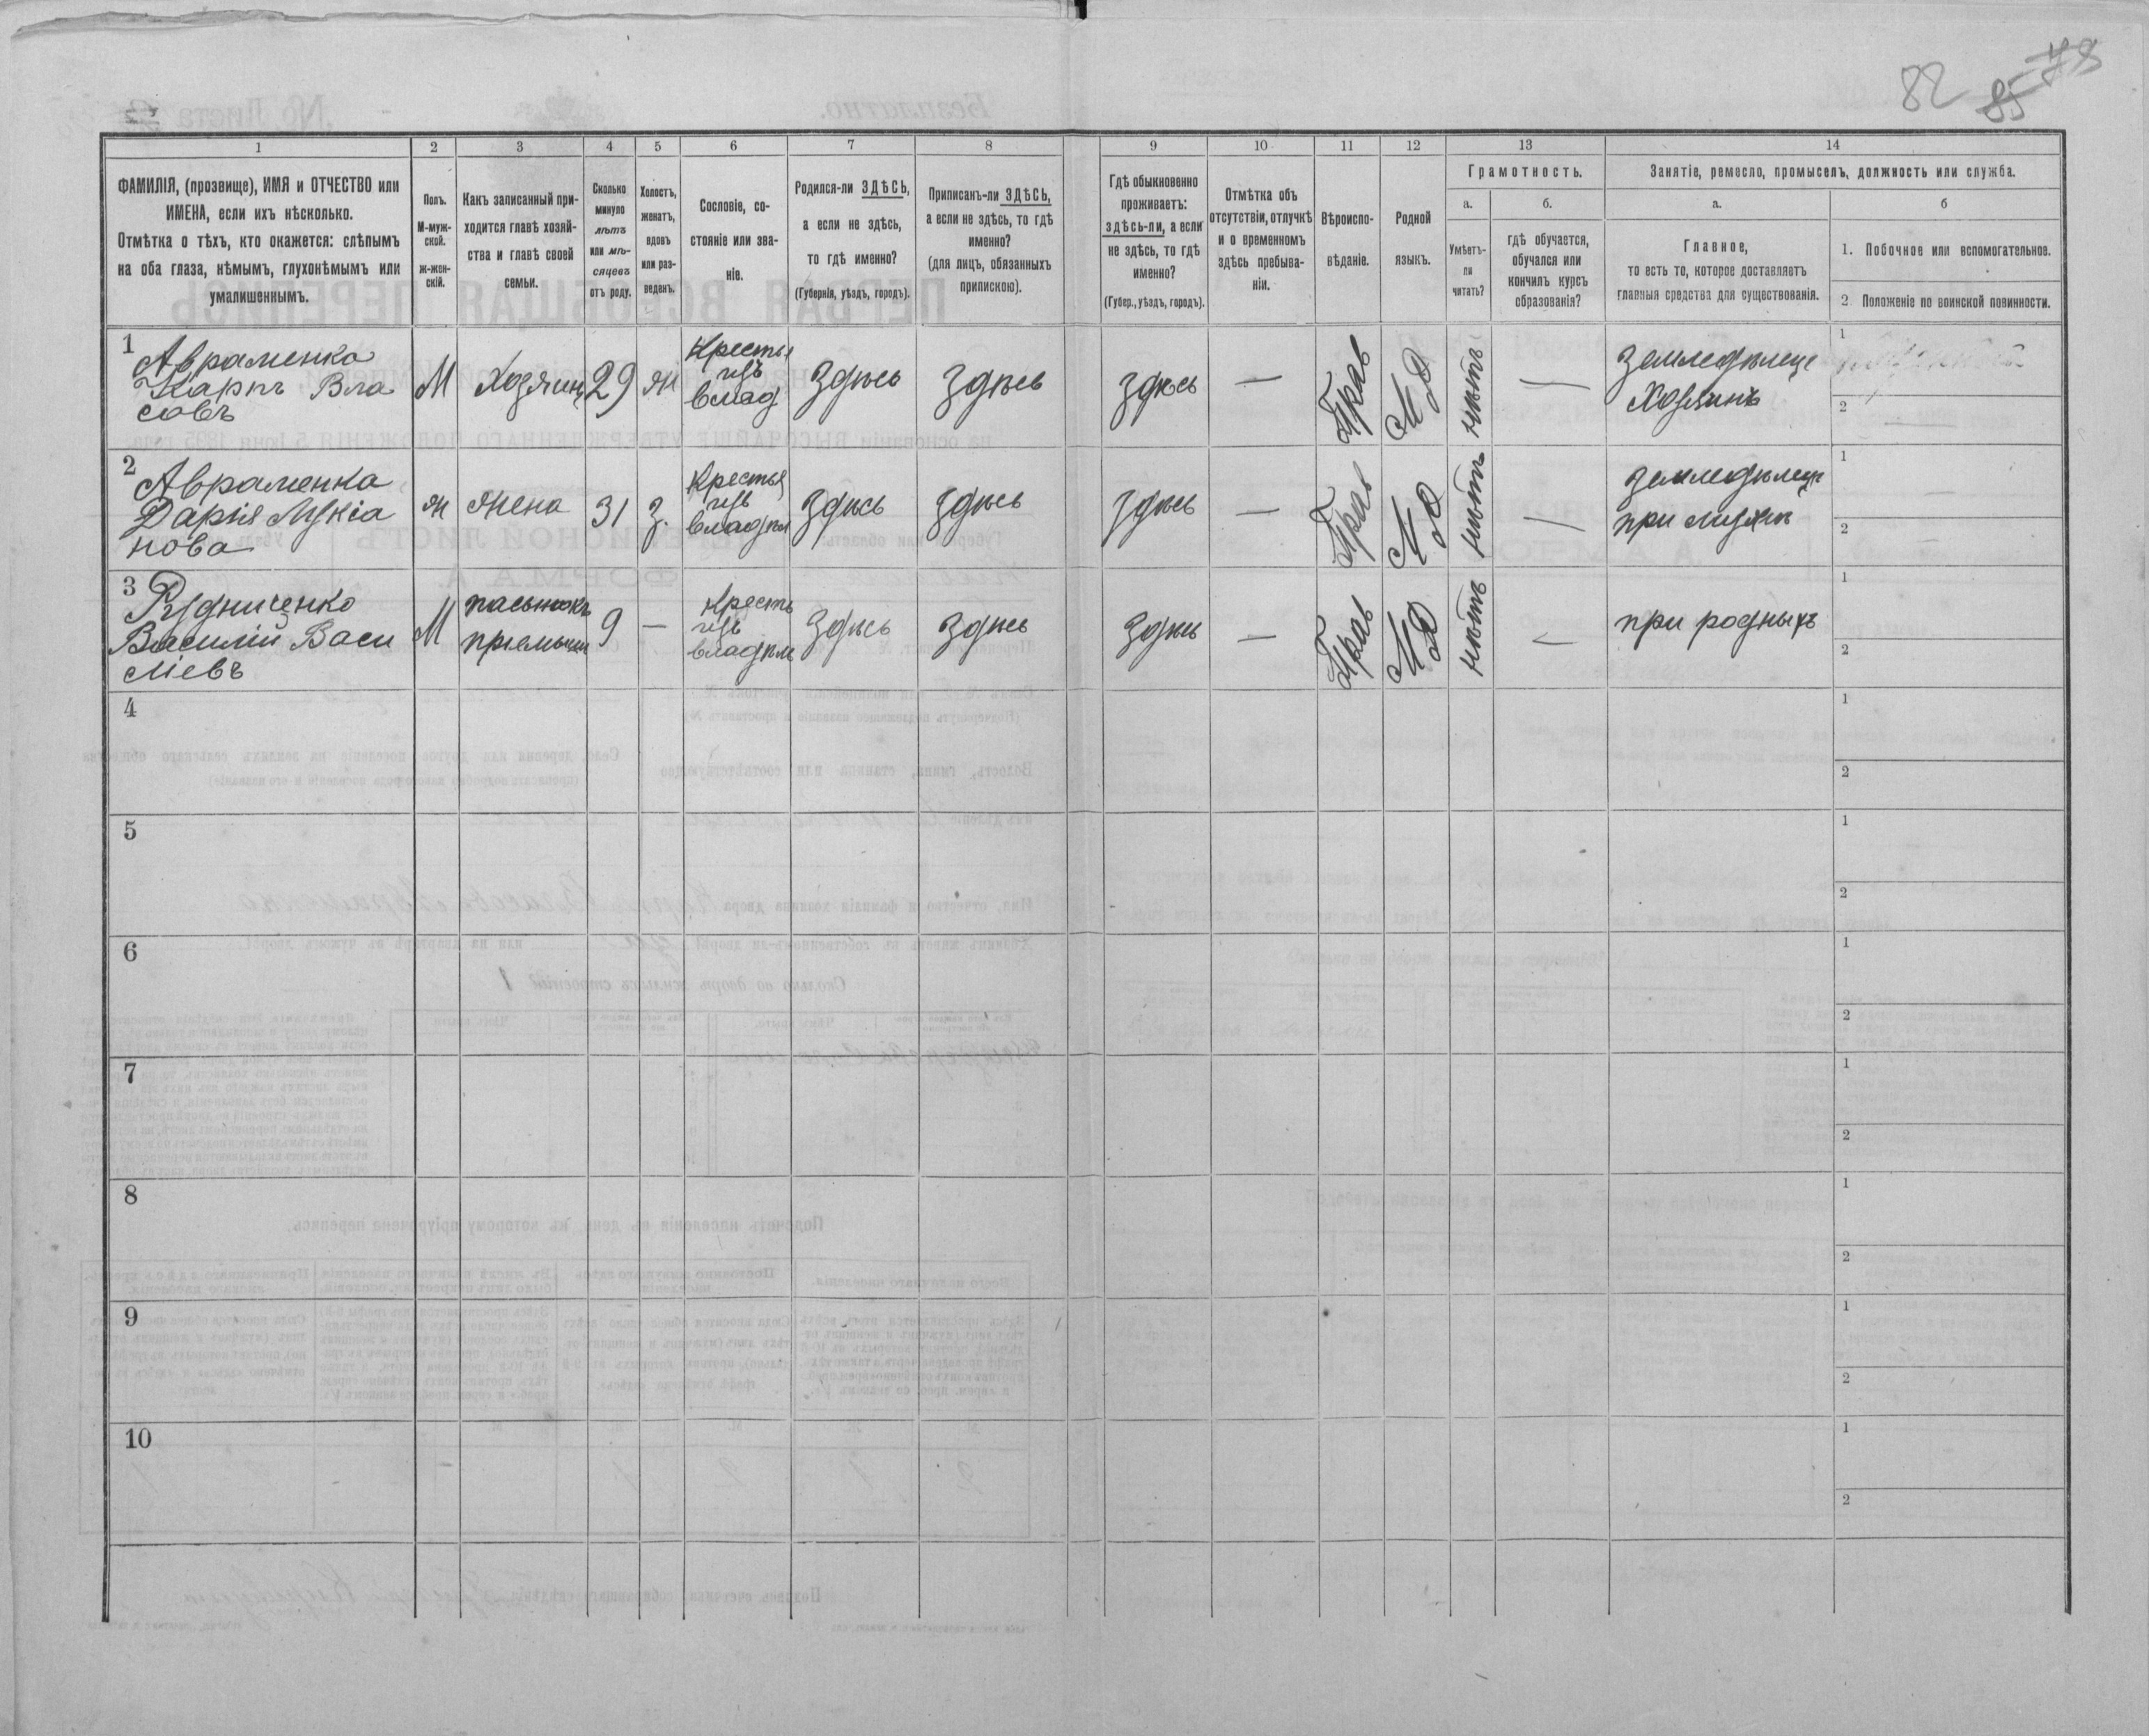 82 85 78
1 2 3 4 5 6 7 8 9 10 11 12 13 14
ФАМИЛІЯ, (прозвище), ИМЯ и ОТЧЕСТВО или
ИМЕНА, если ихъ нѣсколько.
Отмѣтка о тѣхъ, кто окажется: слѣпымъ
на оба глаза, нѣмымъ, глухонѣмымъ или
умалишеннымъ.
Полъ.
М-муж-
ской.
ж-жен-
скій.
Какъ записанный при-
ходится главѣ хозяй-
ства и главѣ своей
семьи.
Сколько
минуло
лѣтъ
или мѣ-
сяцевъ
отъ роду.
Холостъ,
женатъ,
вдовъ
или раз-
веденъ.
Сословіе, со-
стояніе или зва-
ніе.
Родился-ли ЗДѢСЬ,
а если не здѣсь,
то гдѣ именно?
(Губернія, уѣздъ, городъ).
Приписанъ-ли ЗДѢСЬ,
а если не здѣсь, то гдѣ
именно?
(для лицъ, обязанныхъ
припискою).
Гдѣ обыкновенно
проживаетъ:
здѣсь-ли, а если
не здѣсь, то гдѣ
именно?
(Губер., уѣздъ, городъ).
Отмѣтка объ
отсутствіи, отлучкѣ
и о временномъ
здѣсь пребыва-
ніи.
Вѣроиспо-
вѣданіе.
Родной
языкъ.
Грамотность.
а.
Умѣетъ-
ли
читать?
б.
гдѣ обучается,
обучался или
кончилъ курсъ
образованія?
Занятіе, ремесло, промыселъ, должность или служба.
а.
Главное,
то есть то, которое доставляетъ
главныя средства для существованія.
б
1. Побочное или вспомогательное.
2 Положеніе по воинской повинности.
1
Авраменко
Карпъ Вла
совъ
М
Хозяинъ
29
ж
Крестья
изъ
влад
Здѣсь
Здѣсь
здѣсь
—
Прав
МД
нѣтъ
—
Земледѣлец
Хозяинъ
1
2
2
Авраменка
Дарія Лукіа
нова
ж
Жена
31
з.
Крестья
изъ
владѣл
Здѣсь
Здѣсь
Здѣсь
—
Прав
МД
нѣтъ
—
Земледѣлец
при мужѣ
1
2
3
Рудниченко
Василій Васи
ліевъ
М
пасынокъ
пріемыш
9
—
Кресть
изъ
владѣл
Здѣсь
Здѣсь
Здѣсь
—
Прав
МД
нѣтъ
—
при родныхъ
1
2
4
1
2
5
1
2
6
1
2
7
1
2
8
1
2
9
1
2
10
1
2